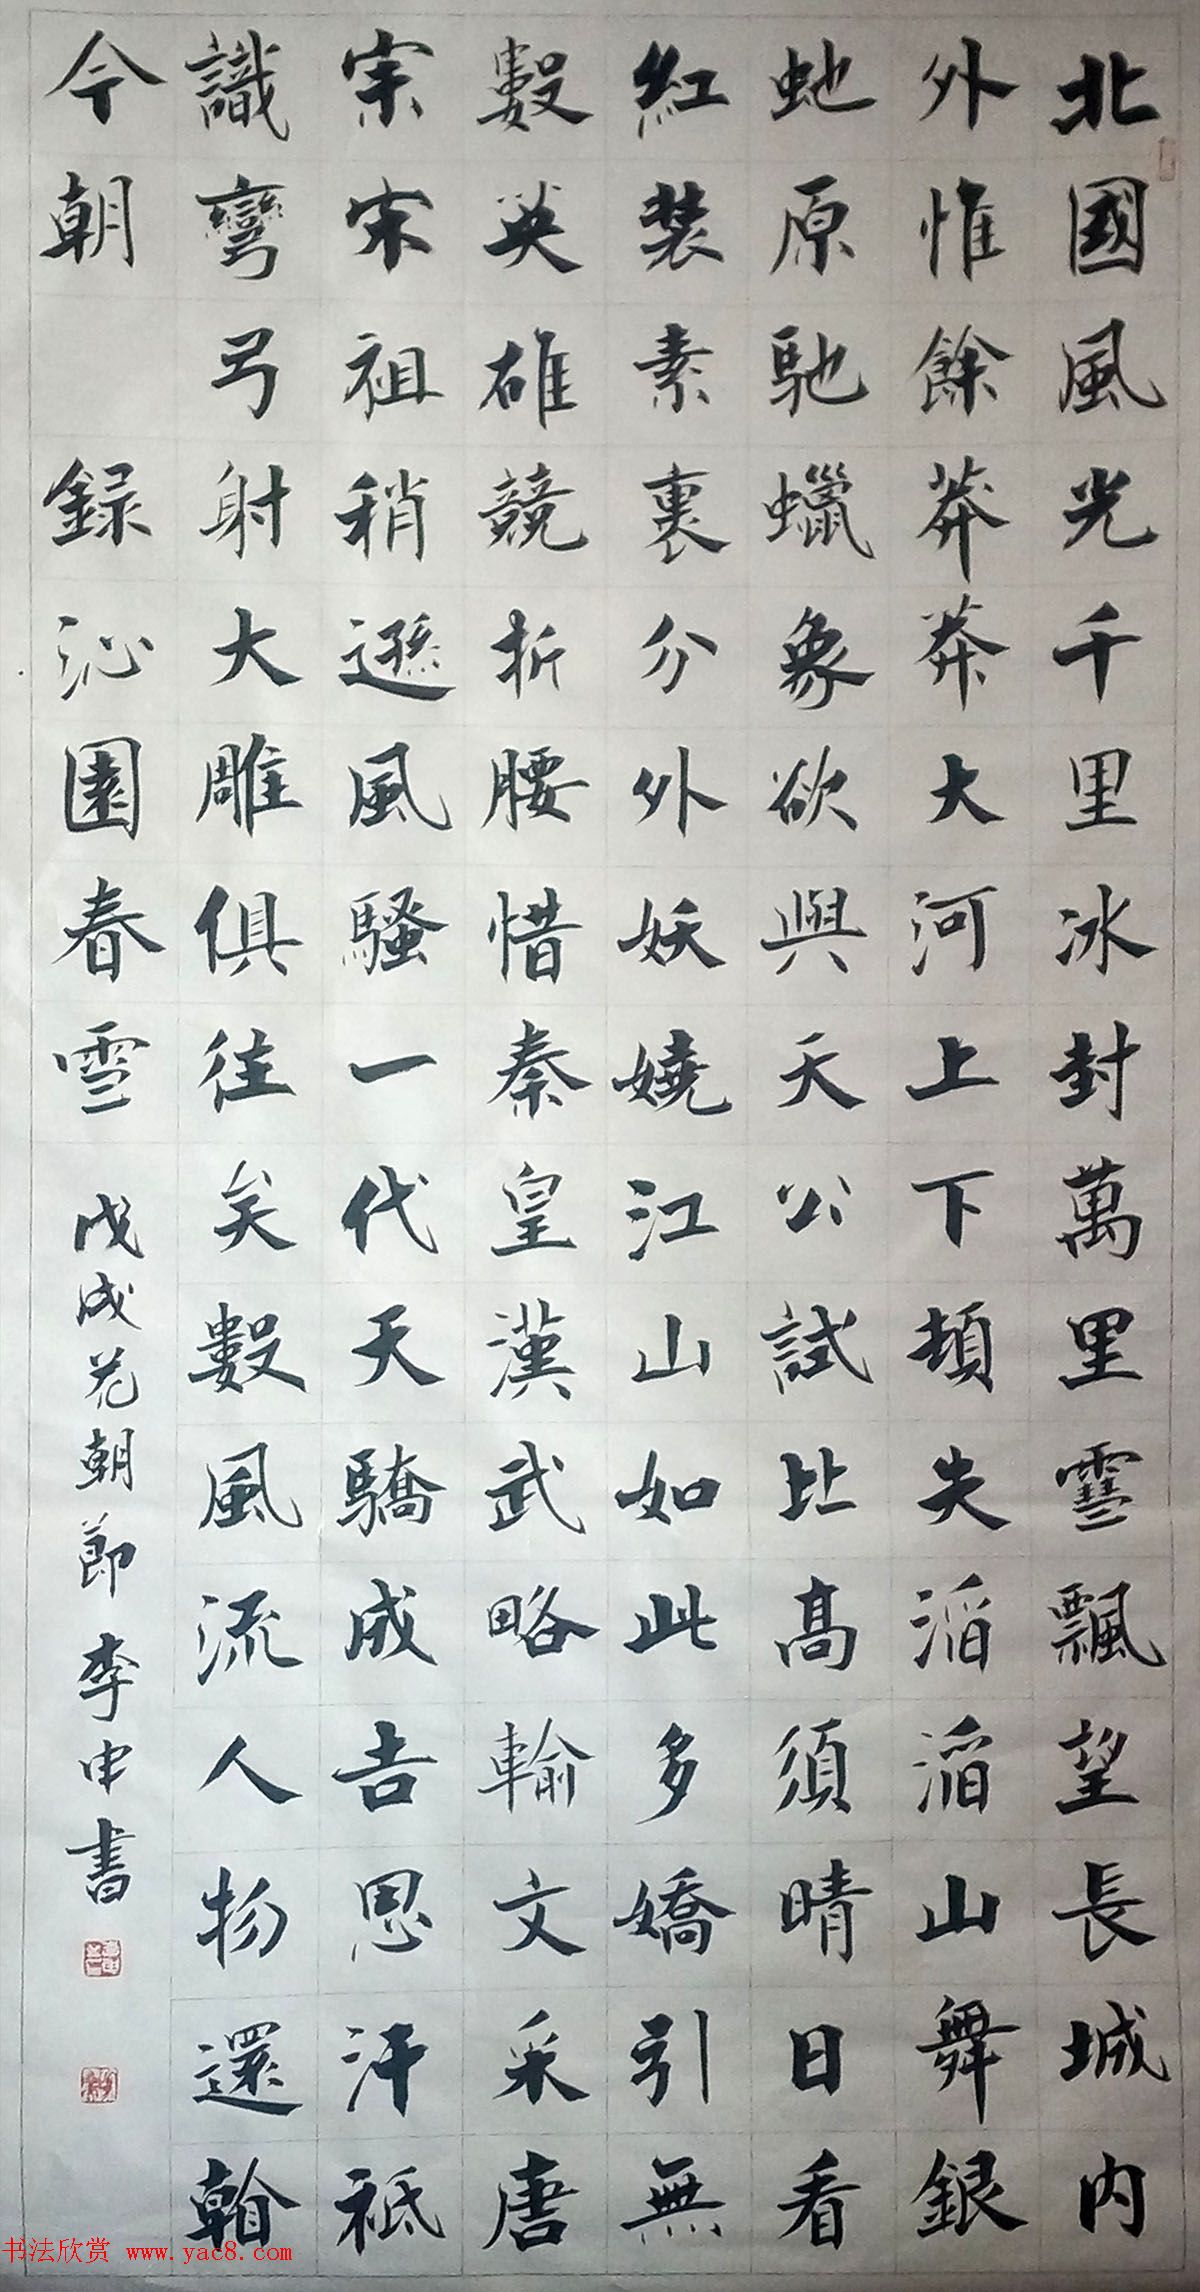 北國風光千里冰封萬里雪飄望長城内
外惟餘莽莽大河上下頓失滔滔山舞銀
虵原馳蠟象欲與天公試比高須晴日看
紅裝素裹分外妖嬈江山如此多嬌引無
數英雄競折腰惜秦皇漢武略輸文采唐
宗宋祖稍遜風騷一代天驕成吉思汗祗
識彎弓射大雕俱往矣數風流人物還看
今朝 録沁園春雪 戊戌花朝節李申書
书法欣赏 www.yac8.com